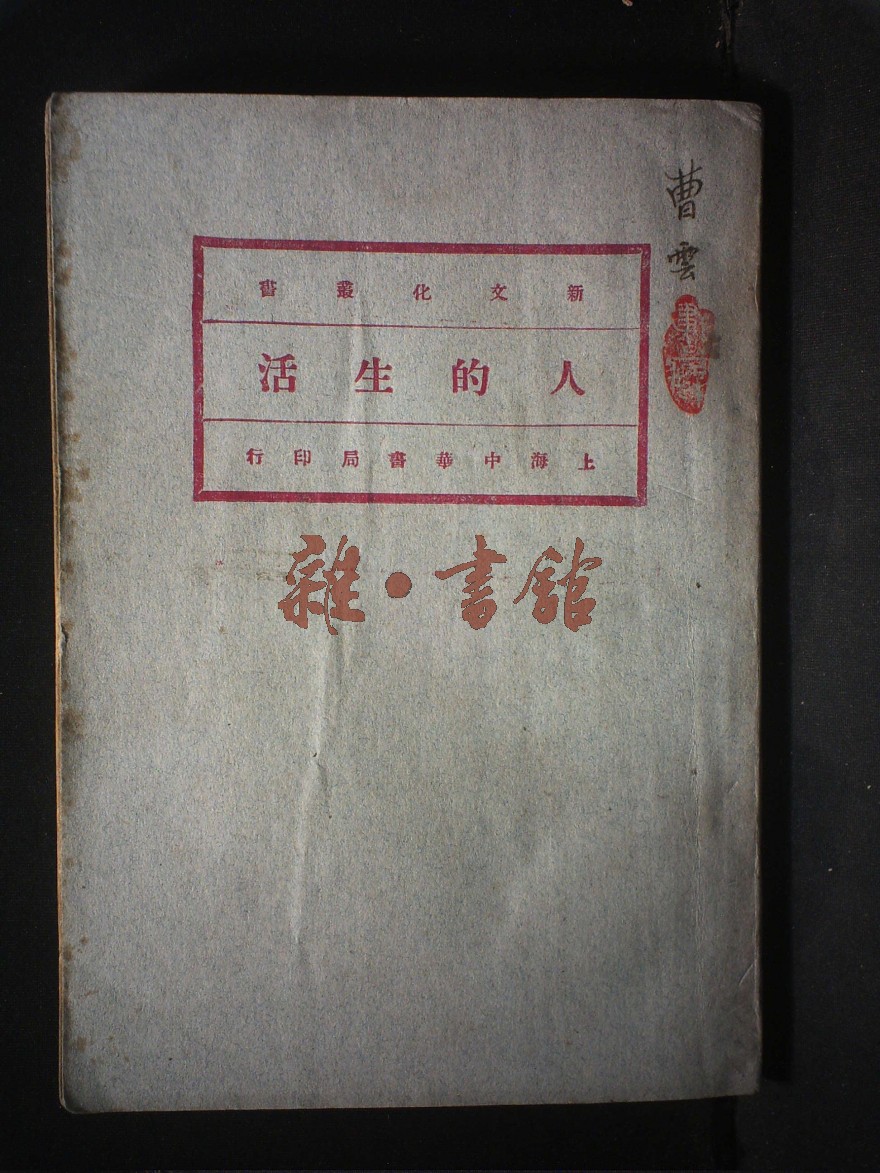 新文化叢書
人的生活
上海中華書局印行
曹雲
雜·書館